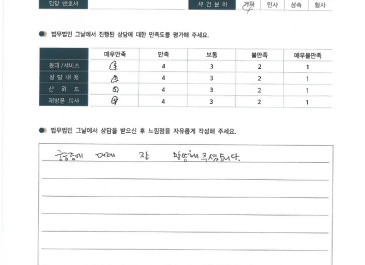 담당 변호사 사 건 분 야 가사 민사 상속 형사
법무법인 그날에서 진행된 상담에 대한 만족도를 평가해 주세요.
매우만족 만족 보통 불만족 매우불만족
응대 / 서비스 5 4 3 2 1
상 담 내 용 5 4 3 2 1
신 뢰 도 5 4 3 2 1
재방문 의사 5 4 3 2 1
법무법인 그날에서 상담을 받으신 후 느낌점을 자유롭게 작성해 주세요.
궁금증에 대해 잘 말씀해 주셨습니다.